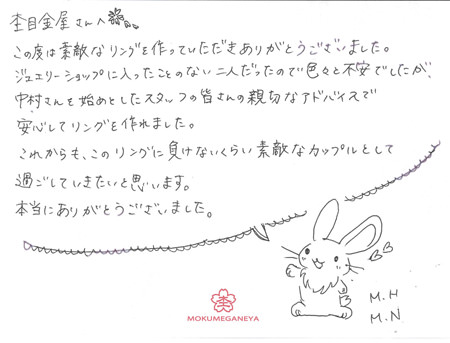 杢目金屋さんへ
この度は素敵なリングを作っていただきありがとうございました。
ジュエリーショップに入ったことのない二人だったので色々と不安でしたが、
中村さんを始めとしたスタッフの皆さんの親切なアドバイスで
安心してリングを作れました。
これからも、このリングに負けないくらい素敵なカップルとして
過ごしていきたいと思います。
本当にありがとうございました。
M.H
M.N
MOKUMEGANEYA